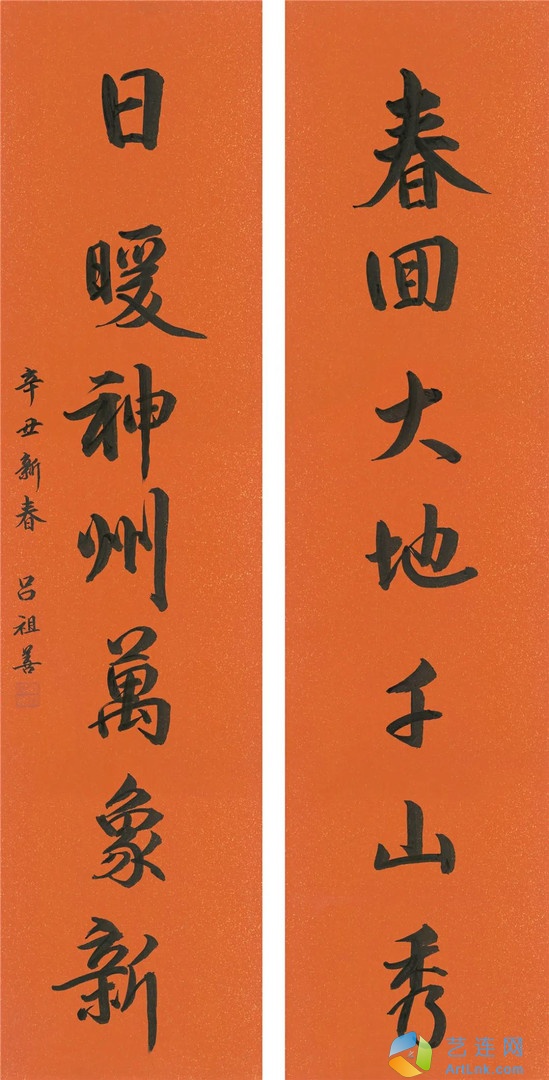 春囬大地千山秀
日暖神州萬象新
辛丑新春 吕祖善
艺连网
ArtLnk.com